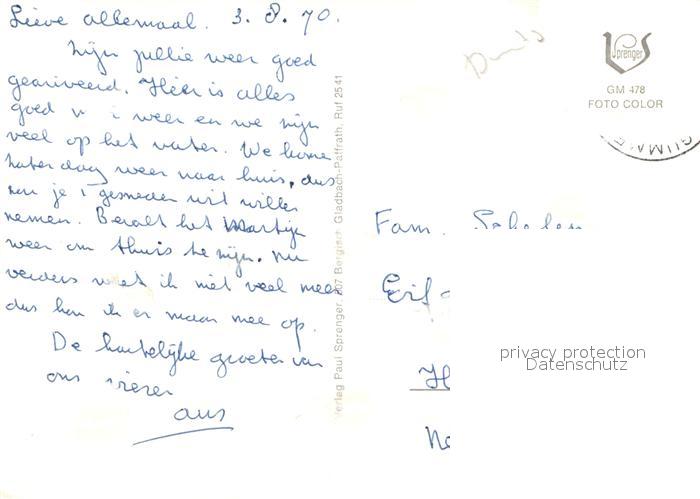 Lieve allemaal. 3. 8. 70.
Zijn jullie weer goed
gearriveerd. Hier is alles
goed weer en we zijn
veel op het water. We komen
zaterdag weer naar huis, dus
kun je willen
nemen. Bevalt het Martijn
weer om thuis te zijn. Nu
verders weet ik niet veel meer
dus hou ik er maar mee op.
De hartelijke groeten van
ons vieren
ans
Verlag Paul Sprenger, 507 Bergisch Gladbach-Paffrath, Ruf 2541
Sprenger
GM 478
FOTO COLOR
GUMME
Fam.
privacy protection
Datenschutz